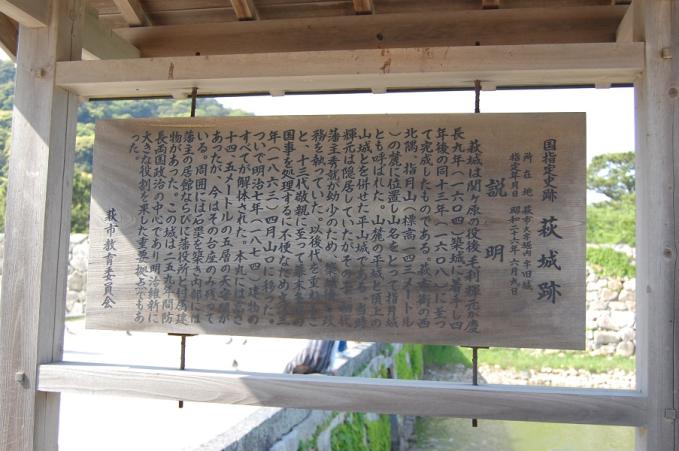 国指定史跡 萩城跡
所在地 萩市大字堀内字旧城
指定年月日 昭二十六年六月九日
説明
萩城は関ヶ原の役後毛利輝元が慶
長九年(一六〇四)築城に着手し四
年後の同十三年(一六〇八)に至っ
て完成したものである。萩市街の西
北隅、指月山(標高一四三メートル
)の麓に位置し山名をとって指月城
とも呼ばれた。山麓の平城と頂上の
山城とを併せた平山城である。当時
輝元は隠居していたが、その子初代
藩主秀就が幼少のため、築城後も政
務を執っていた。以後代を重ねるこ
と、十三代敬親に至って幕末多端の
国事を処理するに不便なため文久三
年(一八六三)四月山口に移った。
ついで明治七年(一八七四)建物の
すべてが解体された。本丸には高さ
十四.五メートルの五層の天守閣が
あったが、今はその台座のみ残して
いる。周囲には石塁を築き内部には
藩主の居館ならびに藩役所
物があった。この城は二五九年間防
長両国政治の中心であり明治維新に
大きな役割を果した重要拠点でもあ
った。
萩市教育委員会